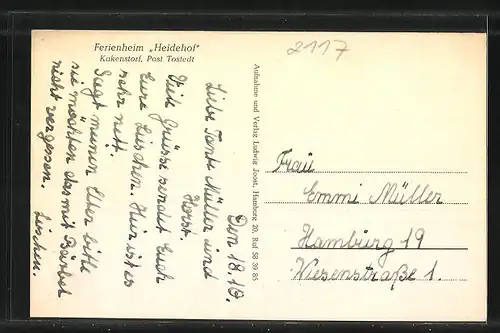 Ferienheim „Heidehof"
Kakenstorf, Post Tostedt
2117
Den 18.10.
Liebe Tante Müller und
Horst.
Viele Grüsse sendet Euch
Eure Lieschen. Hier ist es
sehr nett.
Sagt meinen Eltern bitte
sie möchten das mit Bärbel
nicht vergessen.
Lieschen.
Aufnahme und Verlag Ludwig Joost, Hamburg 20, Ruf 58 39 85
Frau
Emmi Müller
Hamburg 19
Wiesenstraße 1.